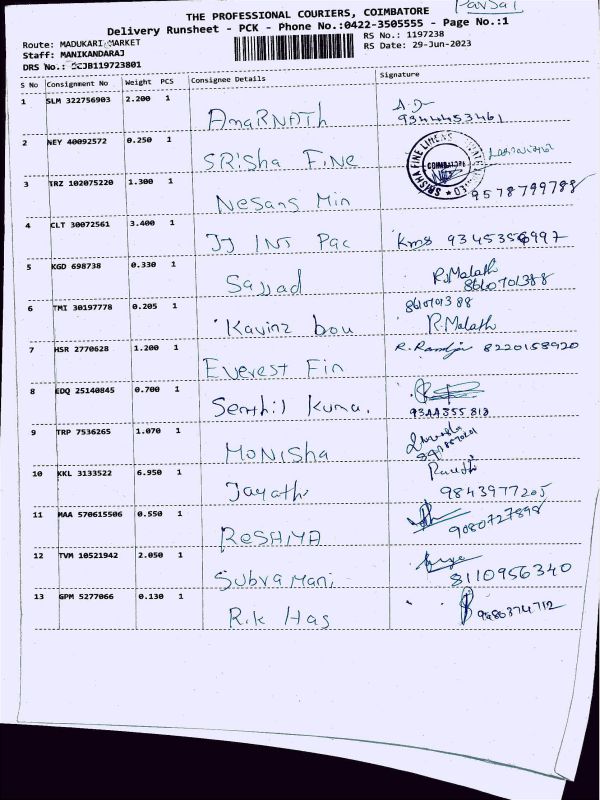 Parsal
THE PROFESSIONAL COURIERS, COIMBATORE
Delivery Runsheet - PCK - Phone No.:0422-3505555 - Page No.:1
Route: MADUKARI MARKET
RS No.: 1197238
Staff: MANIKANDARAJ
RS Date: 29-Jun-2023
DRS No.: CCJB119723801
S No Consignment No Weight PCS Consignee Details Signature
1 SLM 322756903 2.200 1 AmaRNATh
9344453461
2 NEY 40092572 0.250 1 SRisha Fine
SRISHA FINE LINENS
COIMBATORE
3 TRZ 102075220 1.300 1 Nesans Min 9578799788
4 CLT 30072561 3.400 1 JJ INT Pac Kms 9345356997
5 KGD 698738 0.330 1 Sajjad R.Malath
8610701388
6 TMI 30197778 0.205 1 Kavinz bou 861070138 8
R.Malath
7 HSR 2770628 1.200 1 Everest Fin 8220158920
8 EDQ 25140845 0.700 1 Senthil Kuma. 9344355 813
9 TRP 7536265 1.070 1 MoNisha
10 KKL 3133522 6.950 1 Jayathi 9843977205
11 MAA 570615506 0.550 1 ReSAMA 9080727898
12 TVM 10521942 2.050 1 Subramani 8110956340
13 GPM 5277066 0.130 1 R.K Has 9486374712